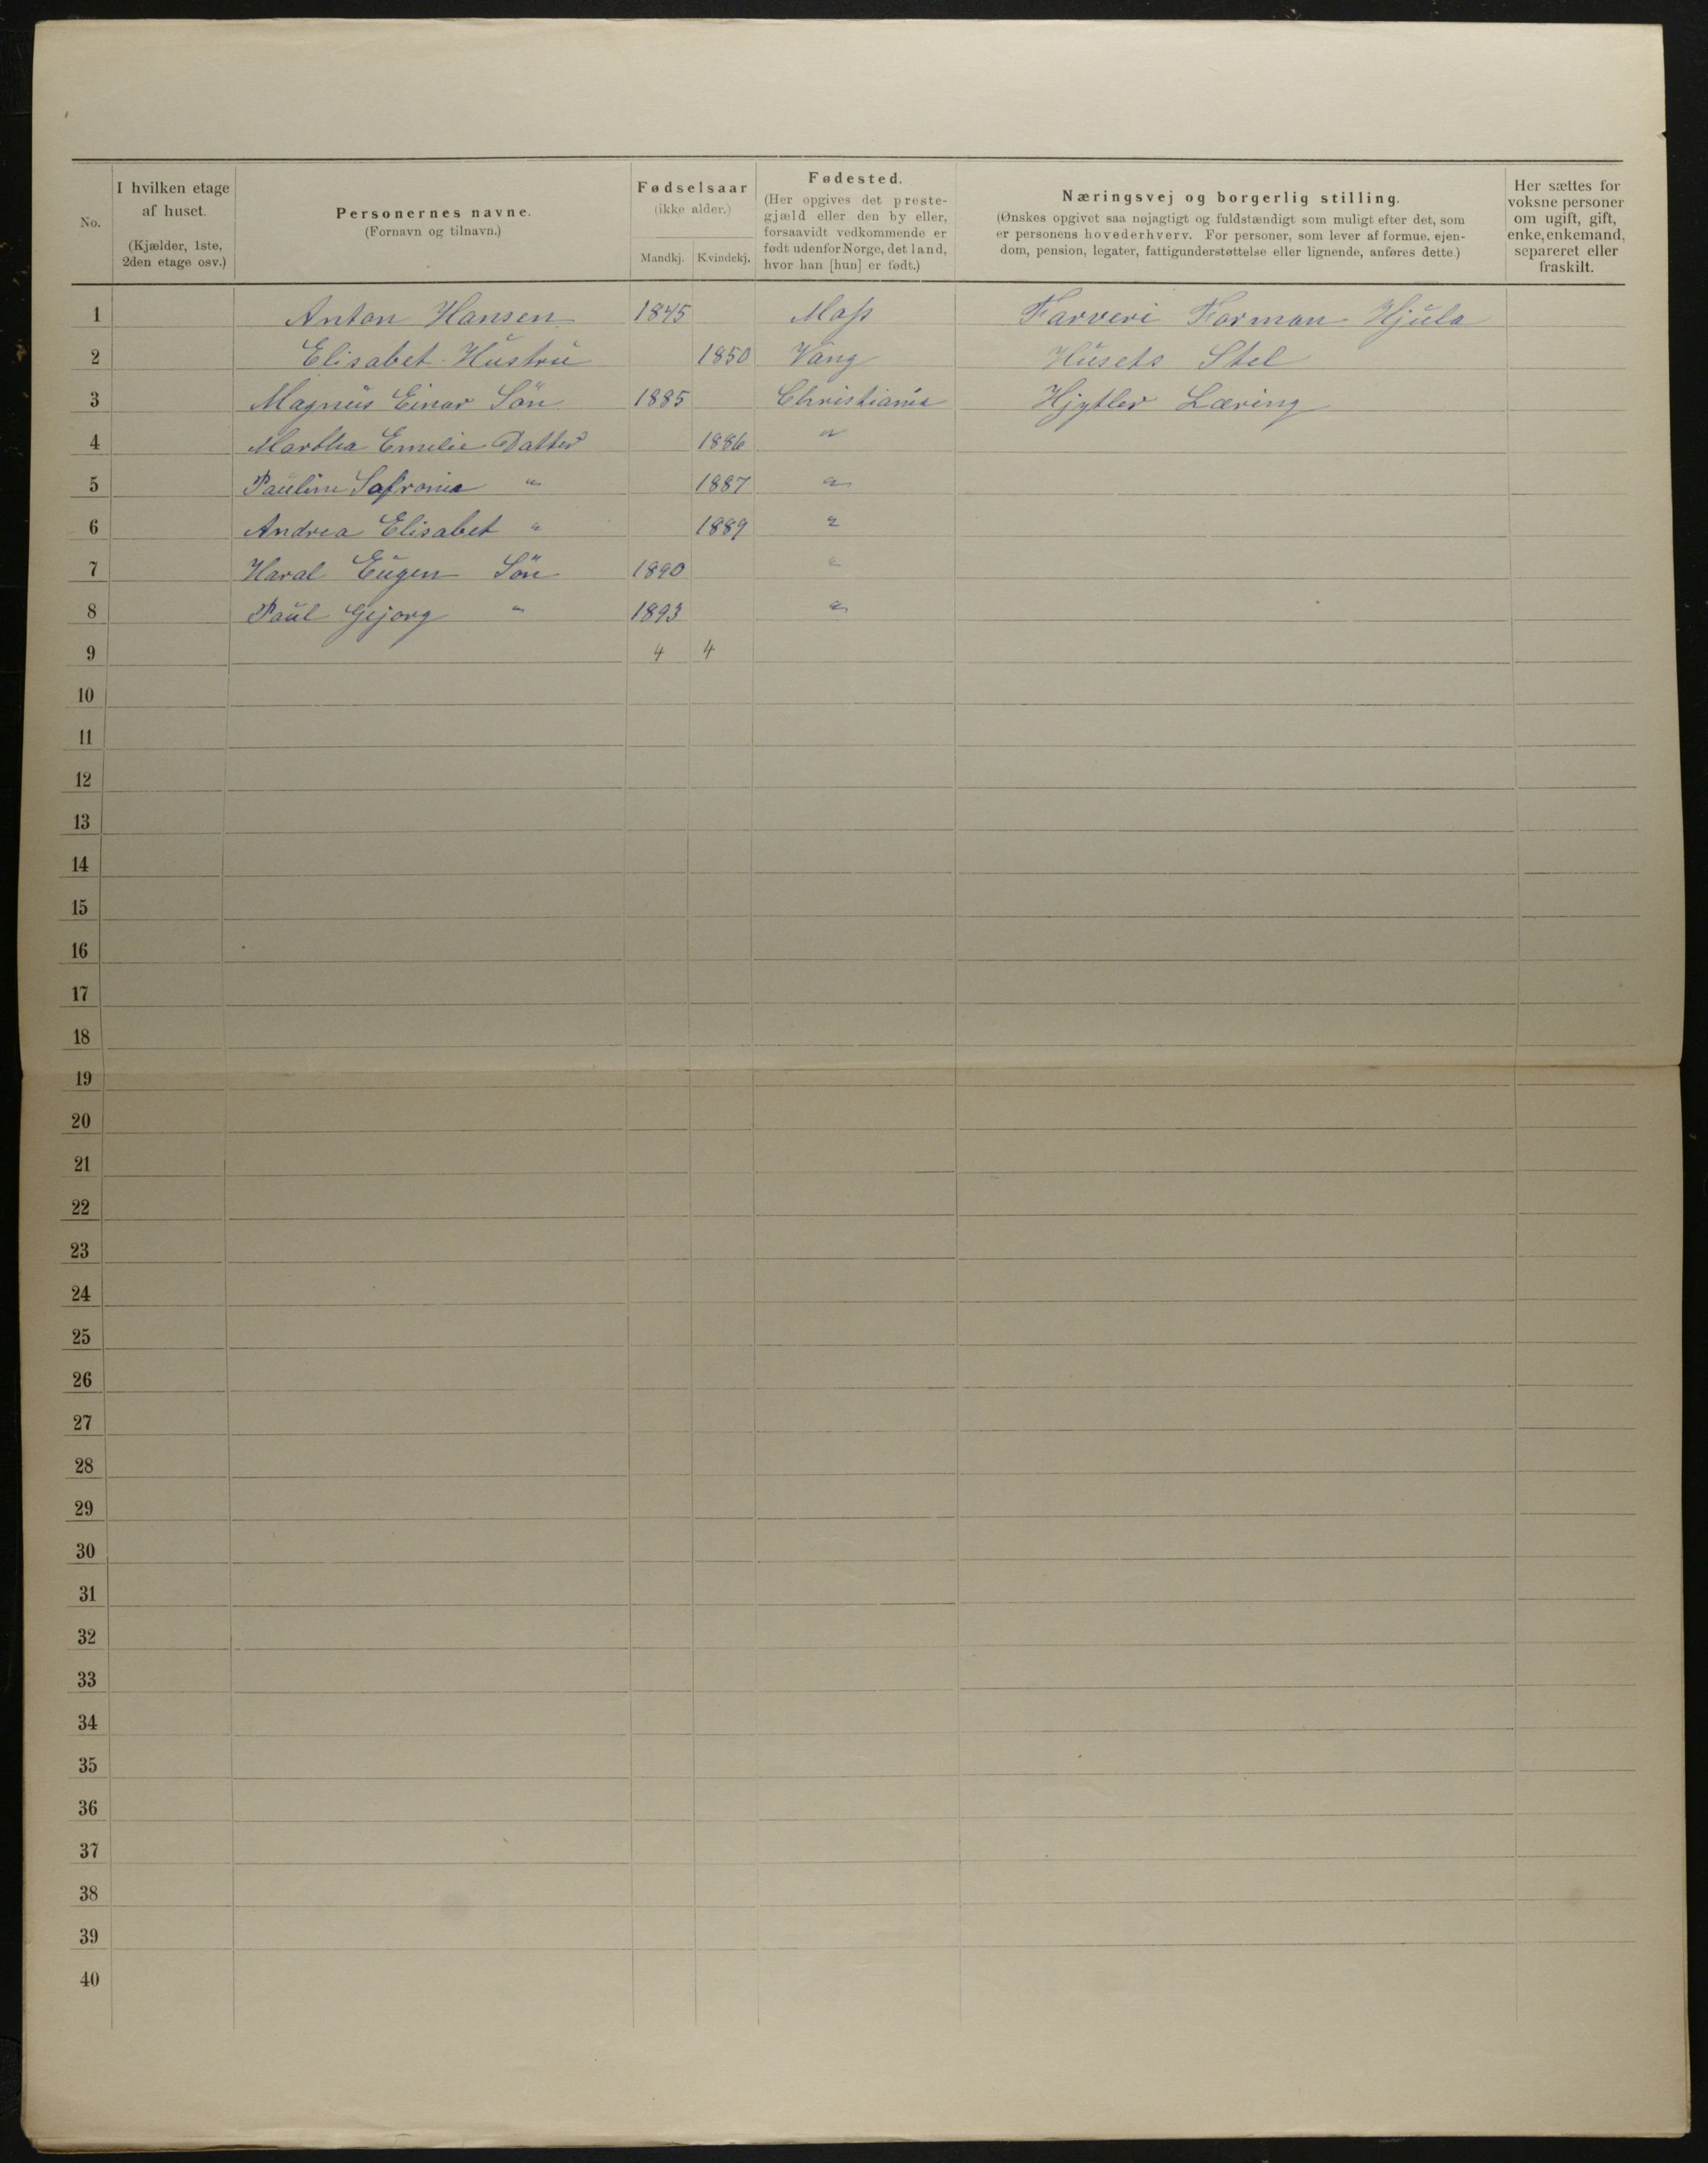 No.
I hvilken etage af huset.
(Kjælder, 1ste, 2den etage osv.)
Personernes navne.
(Fornavn og tilnavn.)
Fødselsaar
(ikke alder.)
Mandkj. Kvindekj.
Fødested.
(Her opgives det preste-
gjæld eller den by eller,
forsaavidt vedkommende er
født udenfor Norge, det land,
hvor han [hun] er født.)
Næringsvej og borgerlig stilling.
(Ønskes opgivet saa nøjagtigt og fuldstændigt som muligt efter det, som
er personens hovederhverv. For personer, som lever af formue, ejen-
dom, pension, legater, fattigunderstøttelse eller lignende, anføres dette.)
Her sættes for
voksne personer
om ugift, gift,
enke, enkemand,
separeret eller
fraskilt.
1 Anton Hansen 1845 Moss Farveri Forman Hjula
2 Elisabet Hustru 1850 Vang Husets Stel
3 Magnus Einar Sön 1885 Christiania Hjytler Læring
4 Martha Emelie Datter 1886 "
5 Pauline Safronia " 1887 "
6 Andrea Elisabet " 1889 "
7 Haral Eugen Sön 1890 "
8 Paul Gejorg " 1893 "
9 4 4
10
11
12
13
14
15
16
17
18
19
20
21
22
23
24
25
26
27
28
29
30
31
32
33
34
35
36
37
38
39
40